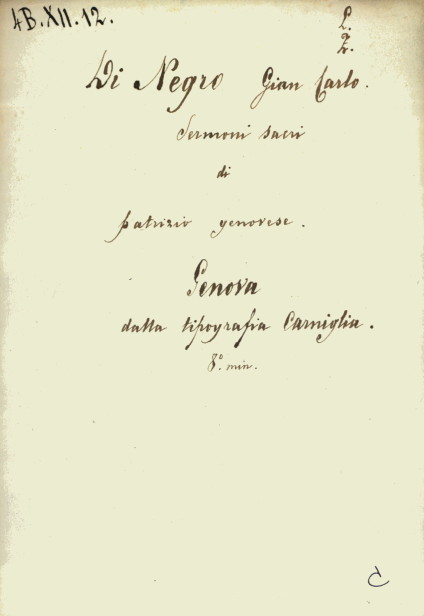 4B.XII.12.
L.
Z.
Di Negro Gian Carlo.
Sermoni sacri
di
patrizio genovese.
Genova
dalla tipografia Carniglia.
8.° min.
C